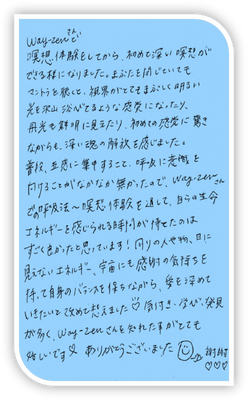 Way-zenで
瞑想体験をしてから、初めて深い瞑想が
できる様になりました。まぶたを閉じていても
マントラを聴くて、視界がとてもまぶしく明るい
光を沢山浴びてるような感覚になったり、
丹光も鮮明に見えたり、初めての感覚に驚き
ながらも、深い魂の解放を感じました。
普段、五感に集中すること、呼吸に意識を
向けることがなかなか無かったので、Way-zenさん
での呼吸法〜瞑想体験を通して、自らの生命
エネルギーを感じられる時間が持てたのは
すごく良かったと思っています！周りの人や物、目に
見えないエネルギー、宇宙にも感謝の気持ちを
持って自身のバランスを保ちながら、愛を深めて
いきたいと改めて想えました♡気付き・学び・発見
が多く、Way-zenさんを知れた事がとても
嬉しいです♡ ありがとうございました
謝謝
♡♡♡